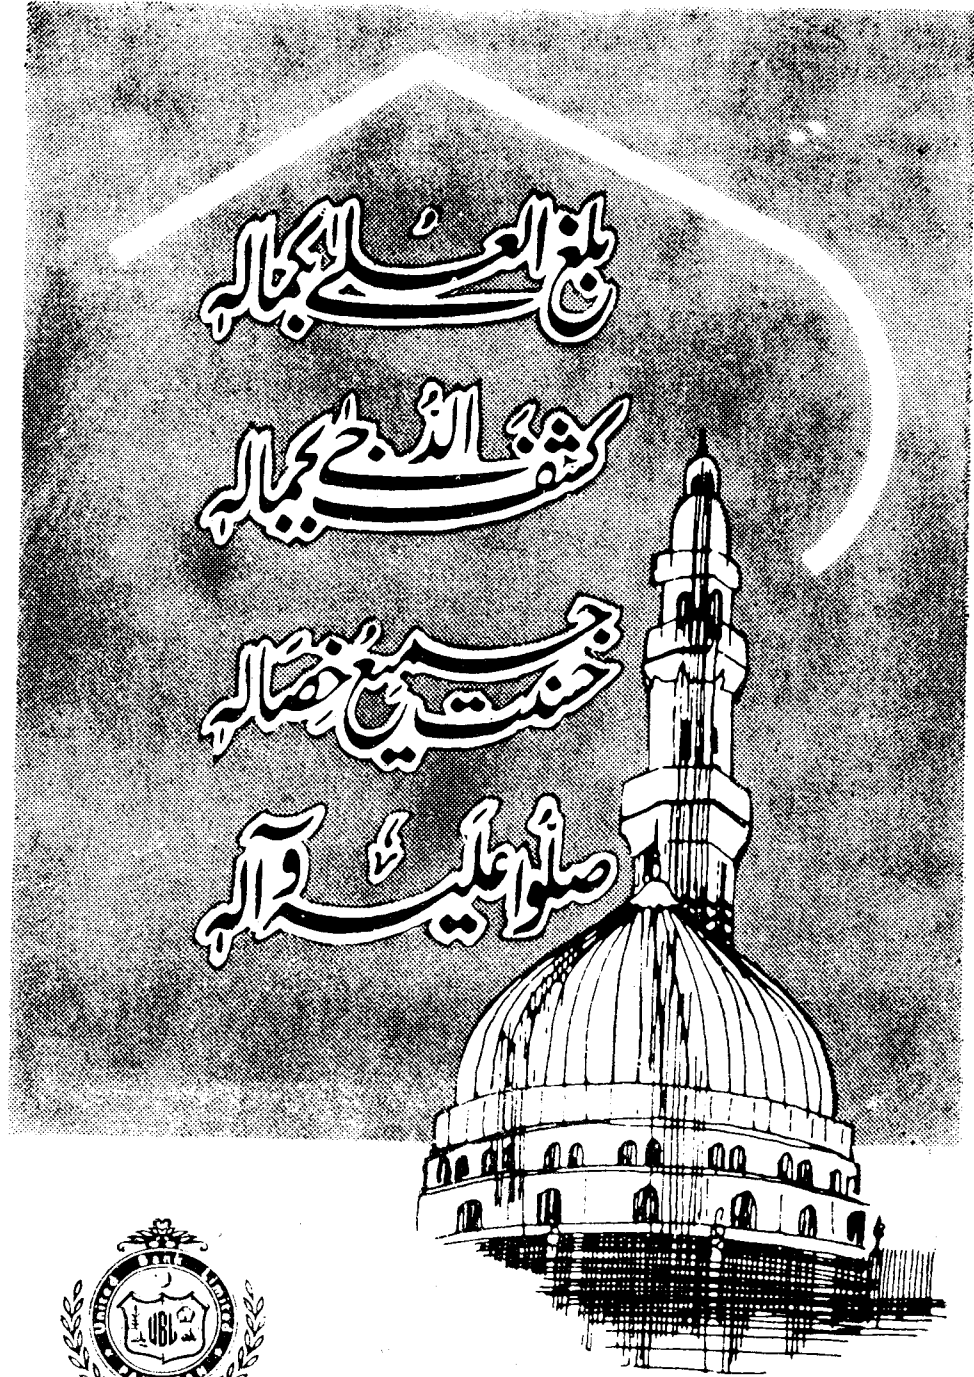 بلغ العلىٰ بكمالہٖ
كشف الدُّجىٰ بجمالہٖ
حسنت جميع خصالہٖ
صلّوا عليہ وآلہٖ
United Bank Limited
UBL
PAKISTAN